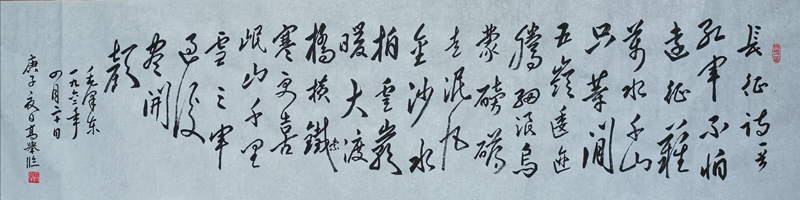 長征詩一首
紅軍不怕
遠征難
萬水千山
只等閒
五嶺逶迤
騰細浪烏
蒙磅礴
走泥丸
金沙水
拍雲崖
暖大渡
橋橫鐵索
寒更喜
岷山千里
雪三軍
過後
盡開
顏
毛澤東
一九六二年
四月二十日
庚子夏日高舉臨